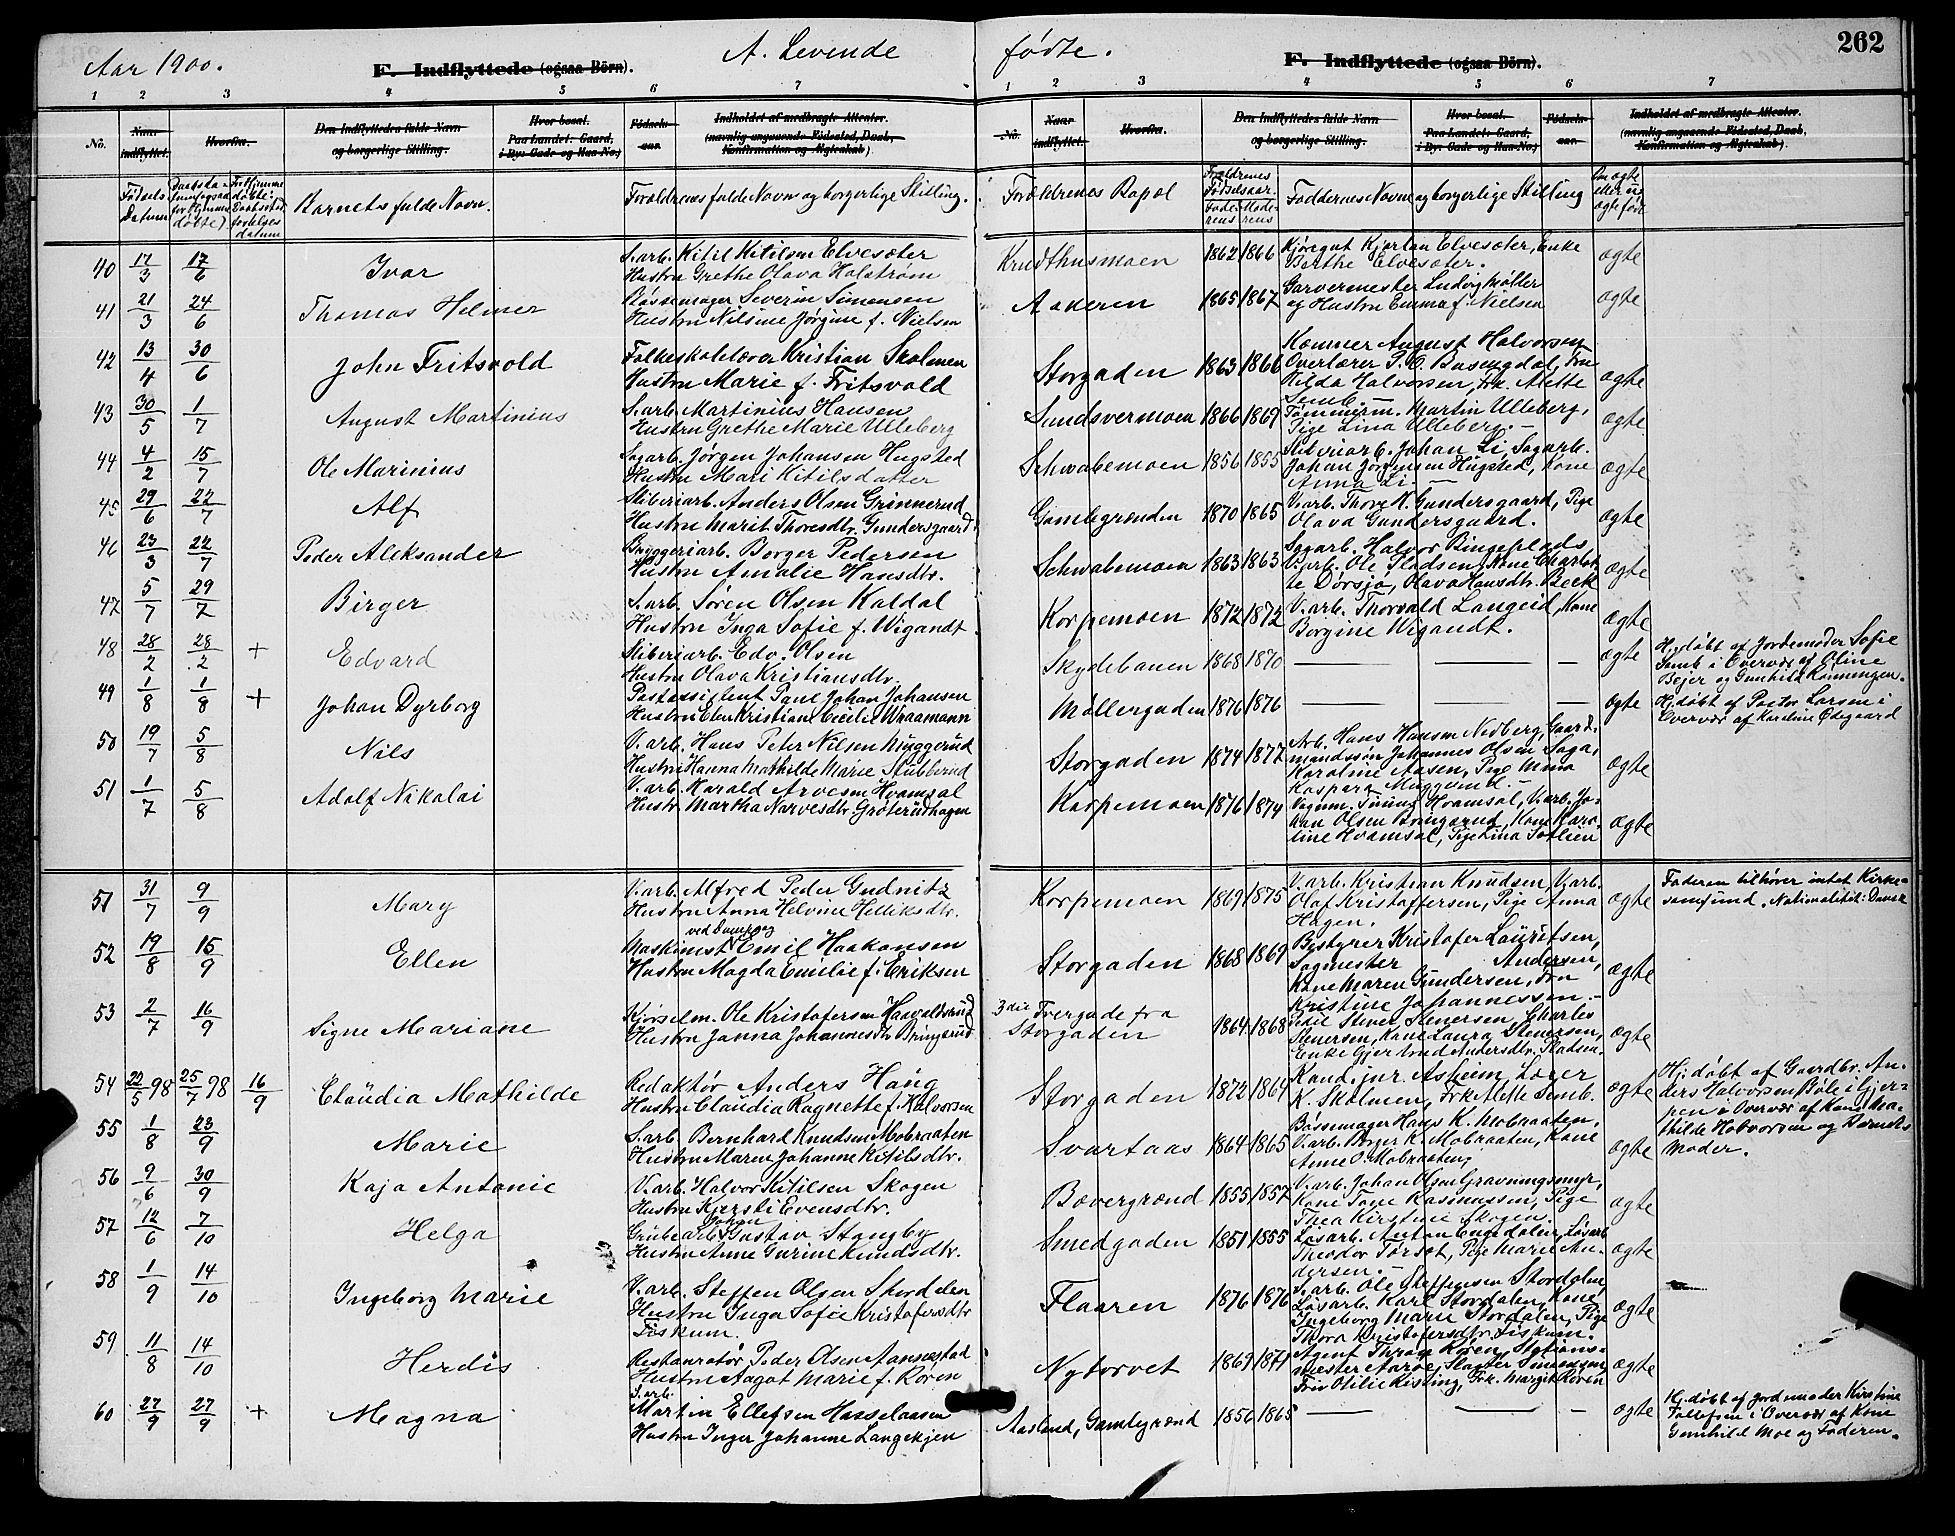 Aar 1900.
E. Indflyttede (ogsaa Börn).
A. Levende
fødte.
F. Indflyttede (ogsaa Börn).
262
1 2 3 4 5 6 7
1 2 3 4 5 6 7
No. Naar indflyttet. Hvorfra. Den Indflyttedes fulde Navn og borgerlige Stilling. Hvor bosat. Paa Landet: Gaard, i By: Gade og Hus-No. Födsels-aar. Indholdet af medbragte Attester. (navnlig angaaende Födested, Daab, Konfirmation og Ægteskab).
No. Naar indflyttet. Hvorfra. Den Indflyttedes fulde Navn og borgerlige Stilling. Hvor bosat. Paa Landet: Gaard, i By: Gade og Hus-No. Födsels-aar. Indholdet af medbragte Attester. (navnlig angaaende Födested, Daab, Konfirmation og Ægteskab).
Fødsels Datum
Barnets fulde Navn.
Forældrenes fulde Navn og borgerlige Stilling.
Forældrenes Bopæl
Forældrenes Fødselsaar. Faderens Moderens
Faddernes Navne og borgerlige Stilling
Om ægte eller uægte født
40 17/3 17/6 Ivar
S.arb. Kitil Kitilsen Elvesæter
Hustru Grethe Olava Holstrøm
Krudthusmoen 1862 1866
Enke Berthe Elvesæter.
ægte
41 21/3 24/6 Thomas Helmer
Bøssemager Severin Simensen
Hustru Nilsine Jørgine f. Nielsen
Aaderen 1865 1867
Garvermester Ludvig Møller
og Hustru Emma f. Nielsen
ægte
42 13/4 30/6 John Fritsvold
Folkeskolelærer Kristian Skolmen
Hustru Marie f. Fritsvold
Storgaden 1863 1866
Kæmner August Halvorsen
Overlærer P. O. Busengdal, Fru
Hilda Halvorsen, Frk. Alette
Semb. —
ægte
43 30/5 1/7 August Martinius
S.arb. Martinius Hansen
Hustru Grethe Marie Ulleberg
Sundsvermoen 1866 1869
Tømmerm. Martin Ulleberg,
Pige Lina Ulleberg. —
ægte
44 4/2 15/7 Ole Marinius
Sagarb. Jørgen Johansen Hugsted
Hustru Mari Kitilsdatter
Schwabemoen 1856 1855
Sliberiarb. Johan Li, Sagarb.
Johan Jørgensen Hugsted, Kone
Anna Li —
ægte
45 29/6 22/7 Alf
Sliberiarb. Anders Olsen Grinnerud
Hustru Marit Thoresdtr. Gundersgaard.
Gamlegrænden 1870 1865
V.arb. Thore N. Gundersgaard, Pige
Olava Gundersgaard.
ægte
46 23/3 22/7 Peder Aleksander
Bryggeriarb. Borger Pedersen
Hustru Amalie Hansdtr.
Schwabemoen 1863 1863
Sagarb. Halvor Bingeplads
V.arb. Ole Pladsen, Kone Charlotte
Dørsjø, Olava Hansdtr. Beck
ægte
47 5/7 29/7 Birger
S.arb. Søren Olsen Kaldal
Hustru Inga Sofie f. Wigandt
Korpemoen 1872 1872
V.arb. Thorvald Langeid, Kone
Borgine Wigandt.
ægte
48 28/2 28/2 + Edvard
Sliberiarb. Edv. Olsen
Hustru Olava Kristiansdtr.
Skydebanen 1868 1870
— — —
ægte
Hj.døbt af Jordemoder Sofie
Semb i Overvær af Eline
Bejer og Gunhild Konningen.
49 1/8 1/8 + Johan Dyrborg
Postassistent Paul Johan Johansen
Hustru Elen Kristiane Cecilie Wraamann
Møllergaden 1876 1876
— — —
ægte
Hj.døbt af Pastor Larsen i
Overvær af Karoline Ødegaard
50 19/7 5/8 Nils
V.arb. Hans Peter Nilsen Muggerud
Hustru Hanna Mathilde Marie Stubberud
Storgaden 1874 1877
Arb. Hans Hansen Nedberg, Gaard-
mandssøn Johannes Olsen Saga,
Karoline Aasen, Pige Mina
Kaspara Muggerud.
ægte
51 1/7 5/8 Adolf Nikolai
V.arb. Harald Arvesen Hvamsal
Hustr. Martha Narvesdtr. Grøterudhagen
Korpemoen 1876 1874
Hvamsal, V.arb. Jo-
han Olsen Bringerud, Kone Karo-
line Hvamsal, Pige Lina
ægte
51 31/7 9/9 Mary
V.arb. Alfred Peder Gudnitz
Hustru Anna Helvine Helliksdtr.
Korpemoen 1869 1875
V.arb. Kristian Knudsen, V.arb.
Olaf Kristoffersen, Pige Anna
Hagen.
ægte
Faderen tilhører intet Kirke-
samfund. Nationalitet: Dansk
52 19/8 15/9 Ellen
ved Dampsag
Maskinist Emil Haakonsen
Hustru Magda Emilie f. Eriksen
Storgaden 1868 1869
Bestyrer Kristofer Lauritsen,
Sagmester Andersen,
Kone Maren Gundersen, Fru
Kristine Johannessen. —
ægte
53 2/7 16/9 Signe Mariane
Kjørselm. Ole Kristofersen Haavaldsrud
Hustru Janna Johannesdtr Bringerud
3die Tvergade fra
Storgaden 1864 1868
Stener Stenersen, Charles
Stenersen, Kone Laura Stenersen,
Enke Gjertrud Andersdtr. Pladsen.
ægte
54 22/5 98 25/7 98 16/9 Claudia Mathilde
Redaktør Anders Haug
Hustru Claudia Ragnette f. Halvorsen
Storgaden 1872 1864
Kand. jur. Asheim, Lærer
K. Skolmen, Frk Alette Semb.
ægte
Hj.døbt af Gaardbr. An-
ders Halvorsen Bøle i Gjer-
pen i Overvær af Kone Ma-
thilde Halvorsen og Barnets
Moder.
55 1/8 23/9 Marie
S.arb. Bernhard Knudsen Mobraaten
Hustru Maren Johanne Kitilsdtr.
Svartaas 1864 1865
Bøssemager Hans K. Mobraaten,
V.arb. Borger K. Mobraaten, Kone
Anne O. Mobraaten,
ægte
56 9/6 30/9 Kaja Antonie
V.arb. Halvor Kitilsen Skogen
Hustru Kjersti Evensdtr.
Bævergrænd 1855 1857
V.arb. Johan Olsen Gravningsmyr,
Kone Tone Rasmussen, Pige
Thea Kirstine Skogen.
ægte
57 12/6 7/10 Helga
Johan
Grubearb. Gustav Stangeby
Hustru Anne Gurine Knudsdtr.
Smedgaden 1851 1855
Løsarb. Anton Engedalen, Løsarb
Theodor Torsot, Pige Marie An-
dersen. —
ægte
58 1/9 14/10 Ingeborg Marie
V.arb. Steffen Olsen Stordalen
Hustru Inga Sofie Kristofersdtr
Fiskum.
Flaaren 1876 1876
S.arb. Ole Steffensen Stordalen,
Løsarb. Karl Stordalen, Kone
Ingeborg Marie Stordalen, Pige
Thora Kristofersdtr. Fiskum.
ægte
59 11/8 14/10 Herdis
Restauratør Peder Olsen Aannestad
Hustru Aagot Marie f. Koren
Nytorvet 1869 1871
Agent Thron Koren, Stations-
mester Aarøe, Slagter Simensen,
Fru Otilie Kisting, Frk. Margit Koren
ægte
60 27/9 27/9 + Magna
S.arb.
Martin Ellefsen Hasselaasen
Hustru Inger Johanne Langekjen
Aasland, Gamlegrænd 1856 1865
— — —
ægte
Hj.døbt af Jordemoder Kirstine
Tollefsen i Overvær af Kone
Gunhild Moe og Faderen.